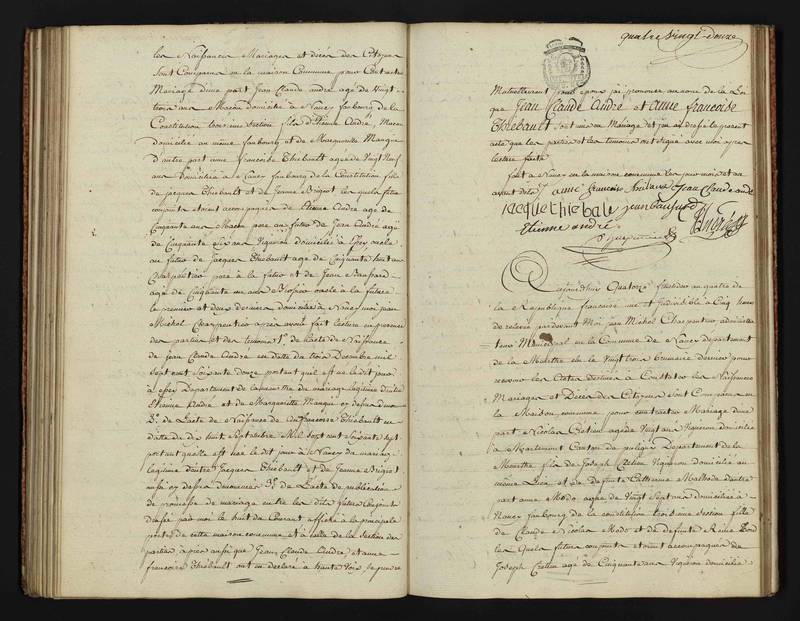 les Naissances Mariages et décès des Citoyens
sont Comparus en la maison Commune pour Contracter
Mariage d'une part Jean Claude andré agé de Vingt
trois ans Macon domicilié à Nancy faubourg de la
Constitution troisieme section fils d'Etienne André, Macon
domicilié au même faubourg et de Marguerite Mangin
d'autre part anne françoise Thiebault agée de Vingt Neuf
ans domiciliée à Nancy faubourg de la Constitution fille
de jacques Thiebault et de Jeanne Brigeot les quels futurs
conjoints etoient accompagnés de Etienne André agé de
Cinquante ans Macon pere au futur de Jean André agé
de Cinquante ans Vigneron domicilié à oncle
au futur de Jacques Thiebault agé de Cinquante huit ans
Charpentier pere à la future et de Jean
agé de Cinquante un ans oncle à la future
le premier et deux derniers domiciliés à Nancy moi jean
Michel Charpentier après avoir fait lecture en presence
des parties et des temoins 1°. de l'acte de Naissance
de jean Claude André en date du trois Decembre mil
sept cent soixante douze portant qu'il est né le dit jour
à Departement de la meurthe du mariage legitime d'entre
Etienne André et de Marguerite Mangin cy dessus denommés
2°. de l'acte de Naissance de anne françoise Thiebault en
date du dix huit Septembre Mil sept cent soixante sept
portant qu'elle est née le dit jour à Nancy du mariage
legitime d'entre Jacques Thiebault et de Jeanne Brigeot
aussi cy dessus denommés 3°. de l'acte de publication
de promesse de mariage entre les dits futurs Conjoints
dressé par moi le huit du Courant affiché à la principale
porte de cette maison commune et à celle de la section des
parties après aussi que Jean Claude André et anne
françoise Thiebault ont eu declaré à haute voix se prendre
quatre Vingt-douze
Mutuellement pour epoux j'ai prononcé au nom de la Loi
que Jean Claude André et anne françoise
Thiebault sont unis en Mariage et j'ai dressé le present
acte que les parties et les temoins ont signé avec moi après
lecture faite
fait à Nancy en la maison commune les jour mois et an
avant dits anne françoise Jean Claude andré
Jacque thiebale jean
Etienne andré André
Charpentier
Aujourdhui Quatorze frimaire an quatre de
la Republique française une et Indivisible à Cinq heures
de relevée pardevant Moi jean Michel Charpentier administra
teur Municipal en la Commune de Nancy departement
de la Meurthe élu le vingt trois brumaire dernier pour
recevoir les Actes destinés à Constater les Naissances
Mariages et Décès des Citoyens sont Comparus en
la Maison commune pour contracter Mariage d'une
part Nicolas Cretin agé de Vingt ans Vigneron domicilié
à Canton de pulligny Departement de la
Meurthe fils de Joseph Cretin Vigneron domicilié au
même Lieu et de Defunte Catherine d'autre
part anne Modo agée de Vingt Sept ans domiciliée à
Nancy faubourg de la constitution troisieme section fille
de Claude Nicolas Modo et de defunte Reine
les Quels futurs conjoints etoient accompagnés de
Joseph Cretin agé de Cinquante ans Vigneron domicilié